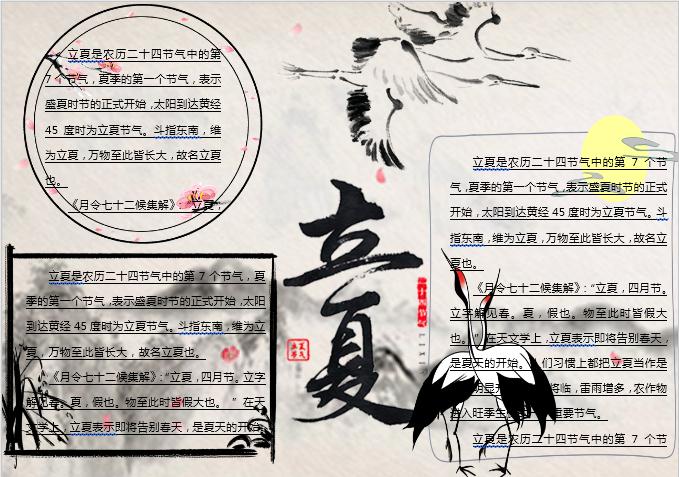 立夏是农历二十四节气中的第
7 个节气，夏季的第一个节气，表示
盛夏时节的正式开始，太阳到达黄经
45 度时为立夏节气。斗指东南，维
为立夏，万物至此皆长大，故名立夏
也。
《月令七十二候集解》：“立夏，
立夏是农历二十四节气中的第 7 个节气，夏
季的第一个节气，表示盛夏时节的正式开始，太阳
到达黄经 45 度时为立夏节气。斗指东南，维为立
夏，万物至此皆长大，故名立夏也。
《月令七十二候集解》：“立夏，四月节。立字
解见春。夏，假也。物至此时皆假大也。 ” 在天
文学上，立夏表示即将告别春天，是夏天的开始。
立夏
二十四节气
LIXI
立夏是农历二十四节气中的第 7 个节
气，夏季的第一个节气，表示盛夏时节的正式
开始，太阳到达黄经 45 度时为立夏节气。斗
指东南，维为立夏，万物至此皆长大，故名立
夏也。
《月令七十二候集解》：“立夏，四月节。
立字解见春。夏，假也。物至此时皆假大
在天文学上，立夏表示即将告别春天，
是夏天的开始。 们习惯上都把立夏当作是
明显 将临，雷雨增多，农作物
入旺季生 重要节气。
立夏是农历二十四节气中的第 7 个节